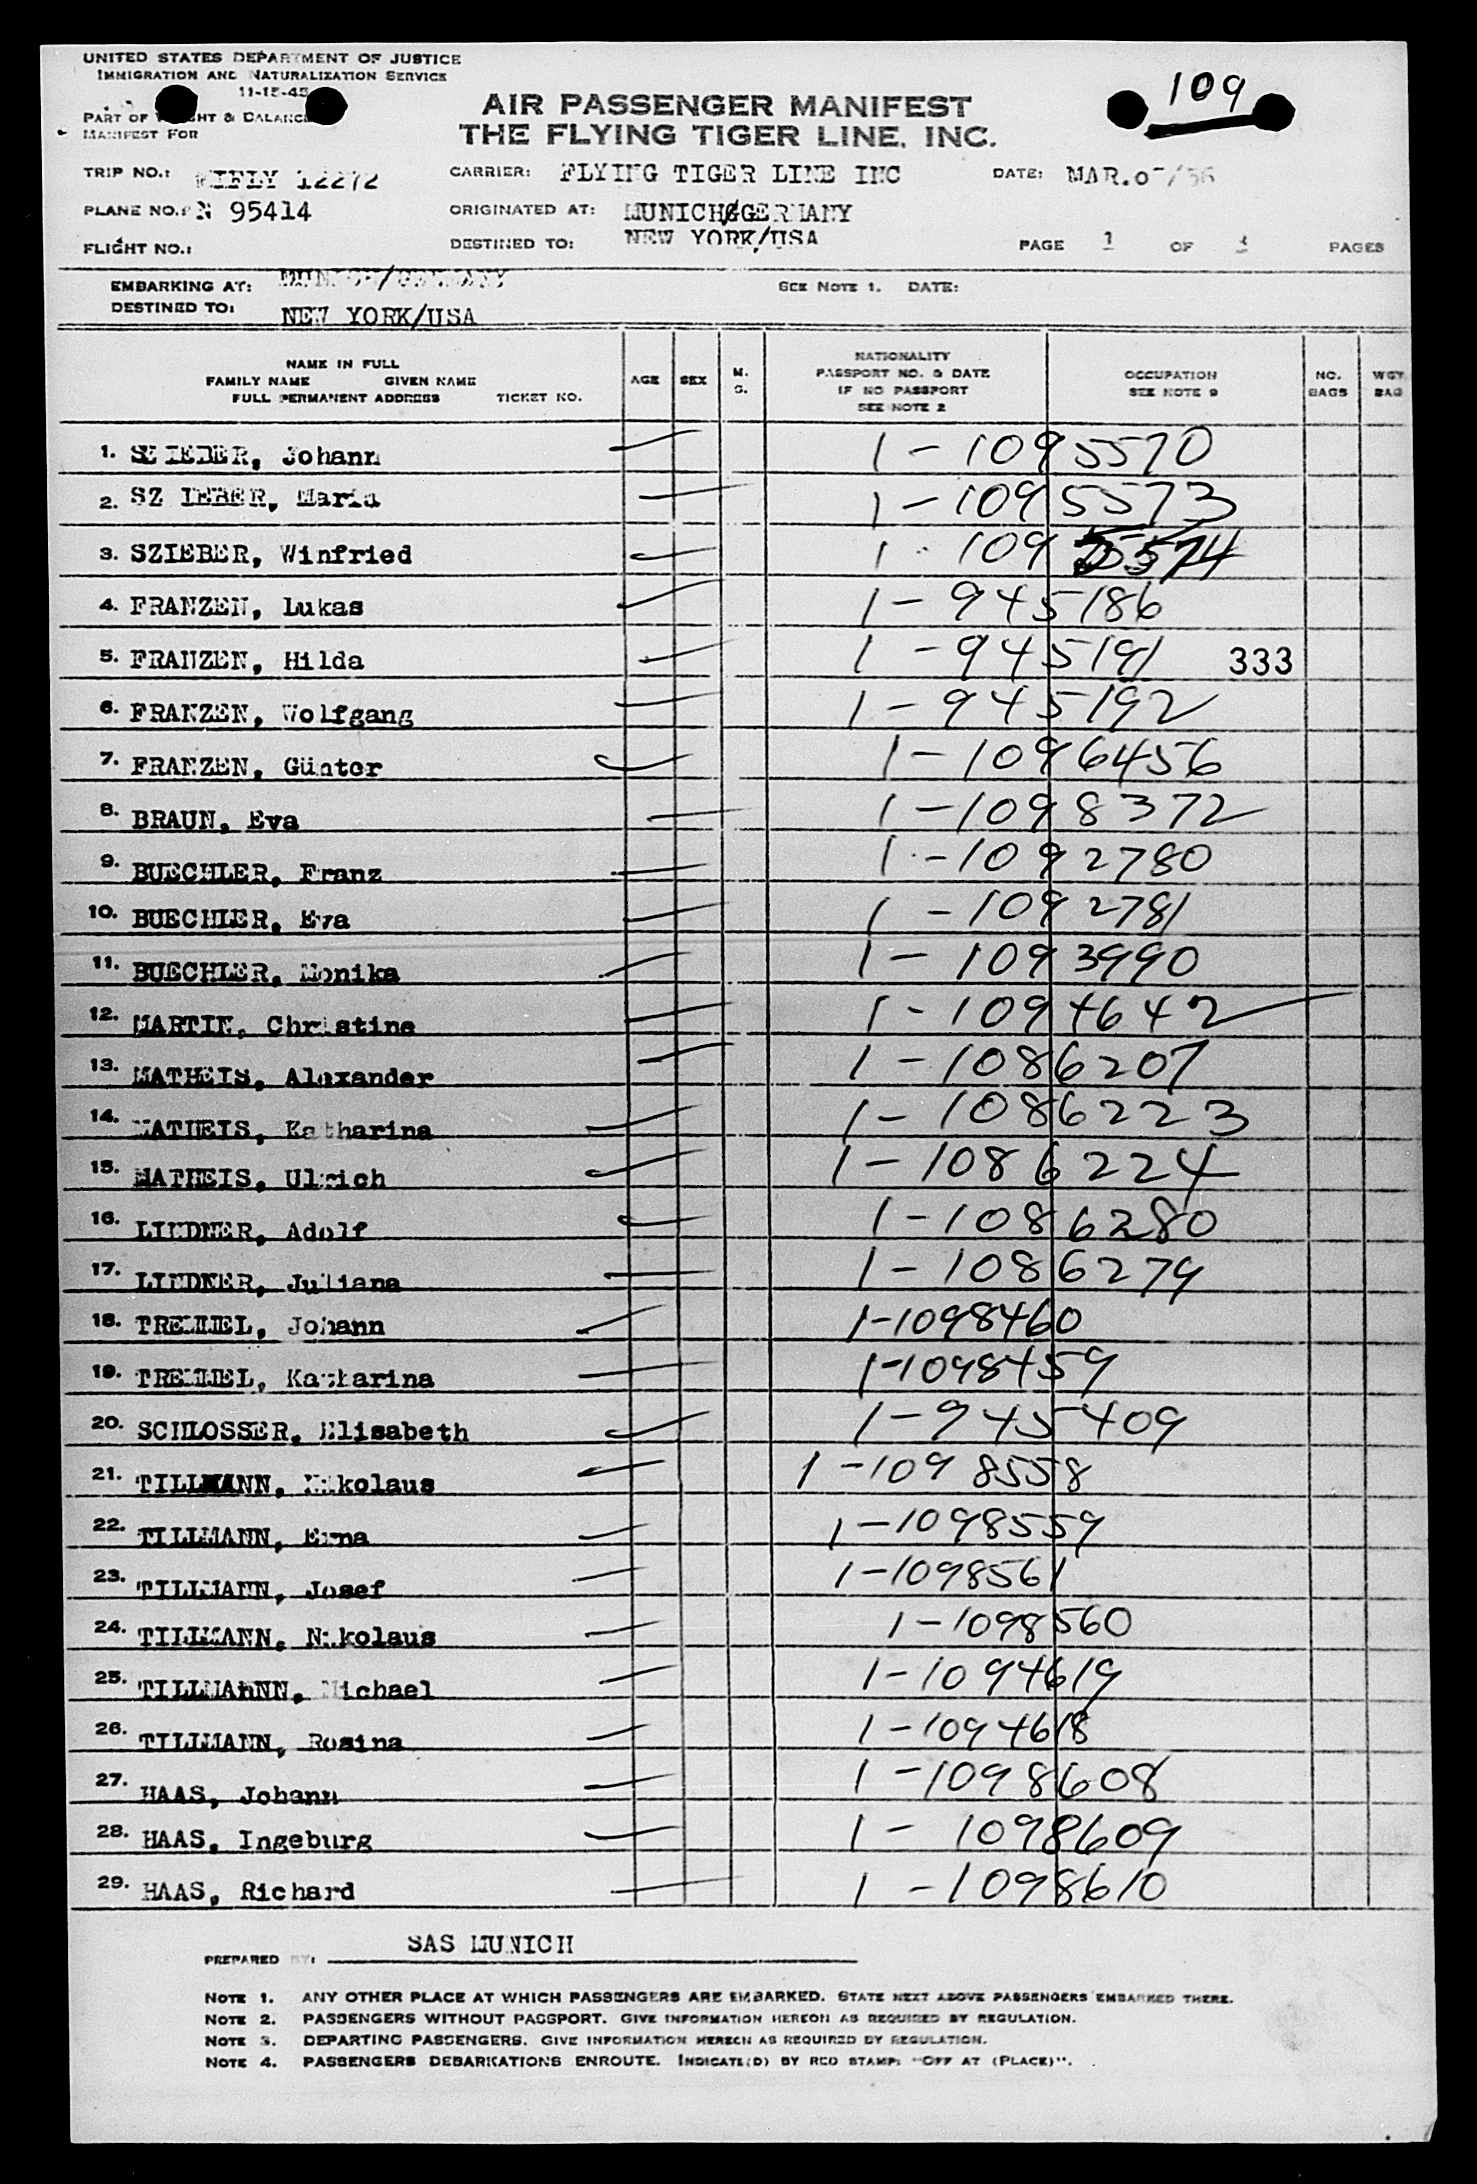 UNITED STATES DEPARTMENT OF JUSTICE
IMMIGRATION AND NATURALIZATION SERVICE
11-15-45
109
PART OF WEIGHT & BALANCE
MANIFEST FOR
AIR PASSENGER MANIFEST
THE FLYING TIGER LINE, INC.
TRIP NO.: 12272
CARRIER: FLYING TIGER LINE INC
DATE: MAR.
PLANE NO.: N 95414
ORIGINATED AT: MUNICH/GERMANY
FLIGHT NO.:
DESTINED TO: NEW YORK/USA
PAGE 1 OF 3 PAGES
EMBARKING AT: MUNICH/GERMANY
SEE NOTE 1. DATE:
DESTINED TO: NEW YORK/USA
NAME IN FULL
FAMILY NAME GIVEN NAME
FULL PERMANENT ADDRESS TICKET NO.
AGE
SEX
M.
S.
NATIONALITY
PASSPORT NO. & DATE
IF NO PASSPORT
SEE NOTE 2
OCCUPATION
SEE NOTE 9
NO.
BAGS
WGT.
BAG
1. SZIEBER, Johann 1-1095570
2. SZ IEBER, Maria 1-1095573
3. SZIEBER, Winfried 1 - 109 5574
4. FRANZEN, Lukas 1-945186
5. FRANZEN, Hilda 1-945191 333
6. FRANZEN, Wolfgang 1-945192
7. FRANZEN, Günter 1-1096456
8. BRAUN, Eva 1-1098372
9. BUECHLER, Franz 1-1092780
10. BUECHLER, Eva 1-1092781
11. BUECHLER, Monika 1-1093990
12. MARTIN, Christine 1-1094642
13. MATHEIS, Alexander 1-1086207
14. MATHEIS, Katharina 1-1086223
15. MATHEIS, Ulrich 1-1086224
16. LINDNER, Adolf 1-1086280
17. LINDNER, Juliana 1-1086279
18. TREMMEL, Johann 1-1098460
19. TREMMEL, Katharina 1-1098459
20. SCHLOSSER, Elisabeth 1-945409
21. TILLMANN, Nikolaus 1-1098558
22. TILLMANN, Erna 1-1098559
23. TILLMANN, Josef 1-1098561
24. TILLMANN, Nikolaus 1-1098560
25. TILLMAhNN, Michael 1-1094619
26. TILLMANN, Rosina 1-1094618
27. HAAS, Johann 1-1098608
28. HAAS, Ingeburg 1-1098609
29. HAAS, Richard 1-1098610
PREPARED BY: SAS MUNICH
NOTE 1. ANY OTHER PLACE AT WHICH PASSENGERS ARE EMBARKED. STATE NEXT ABOVE PASSENGERS EMBARKED THERE.
NOTE 2. PASSENGERS WITHOUT PASSPORT. GIVE INFORMATION HEREON AS REQUIRED BY REGULATION.
NOTE 3. DEPARTING PASSENGERS. GIVE INFORMATION HEREON AS REQUIRED BY REGULATION.
NOTE 4. PASSENGERS DEBARKATIONS ENROUTE. INDICATE(D) BY RED STAMP: "OFF AT (PLACE)".